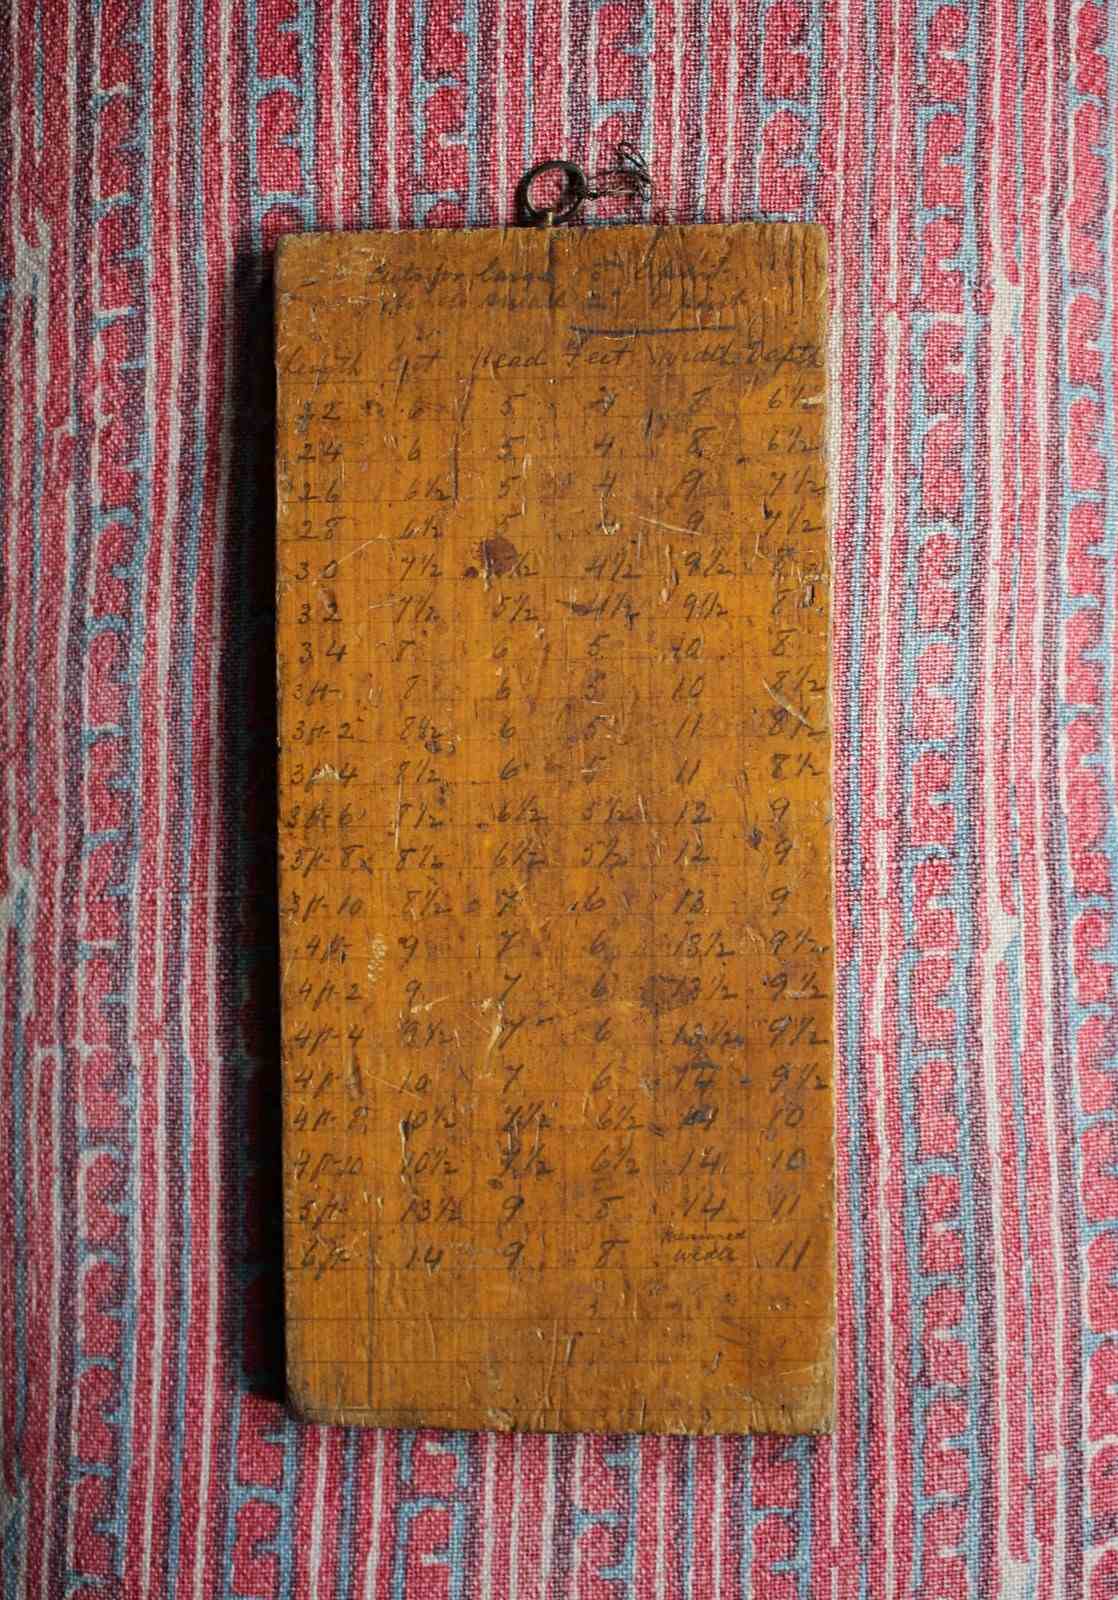 Cuts for large 5" Apart
small 2" Apart
Length Head Feet Width Depth
22 6 5 4 8 6½
24 6 5 4 8 6½
26 6½ 5 4 9 7½
28 6½ 5 9 7½
30 7½ 4½ 9½
32 7½ 5½ 4½ 9½
34 8 6 5 10 8
3ft- 8 6 5 10 8½
3ft-2 8½ 6 5 11 8½
3ft-4 8½ 6 5 11 8½
3ft-6 8½ 6½ 5½ 12 9
3ft-8 8½ 6½ 5½ 12 9
3ft-10 8½ 7 6 13 9
4ft 9 7 6 13½ 9½
4ft-2 9 7 6 13½ 9½
4ft-4 9½ 7 6 13½ 9½
4ft- 10 7 6 14 9½
4ft-8 10½ 7½ 6½ 14 10
4ft-10 10½ 7½ 6½ 14 10
5ft- 13½ 9 8 14 11
6ft 14 9 8 Measured width 11